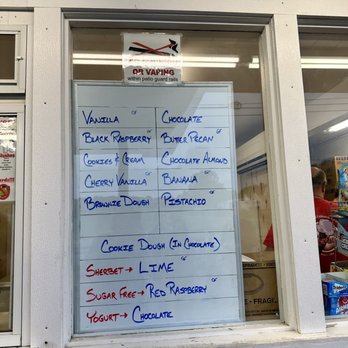 OR VAPING
within patio guard rails
VANILLA GF CHOCOLATE
BLACK RASPBERRY GF BUTTER PECAN GF
COOKIES & CREAM CHOCOLATE ALMOND
CHERRY VANILLA GF BANANA GF
BROWNIE DOUGH PISTACHIO
COOKIE DOUGH (IN CHOCOLATE)
SHERBET → LIME GF
SUGAR FREE → RED RASPBERRY GF
YOGURT → CHOCOLATE
FRAGILE